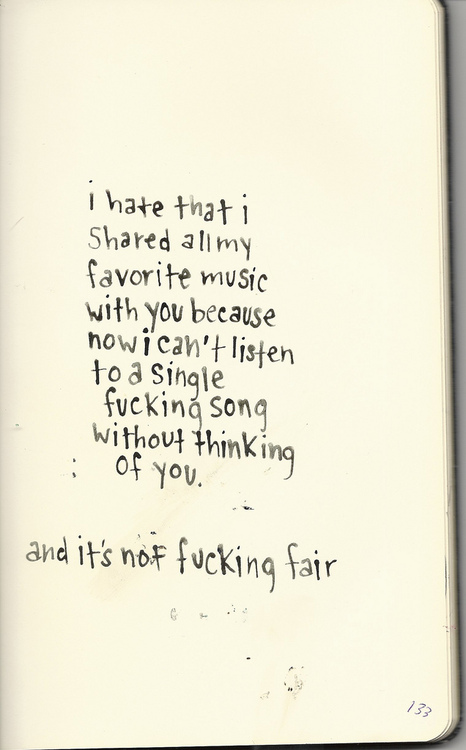 i hate that i
Shared all my
favorite music
with you because
now i can't listen
to a single
fucking song
without thinking
of you.
and it's not fucking fair
133